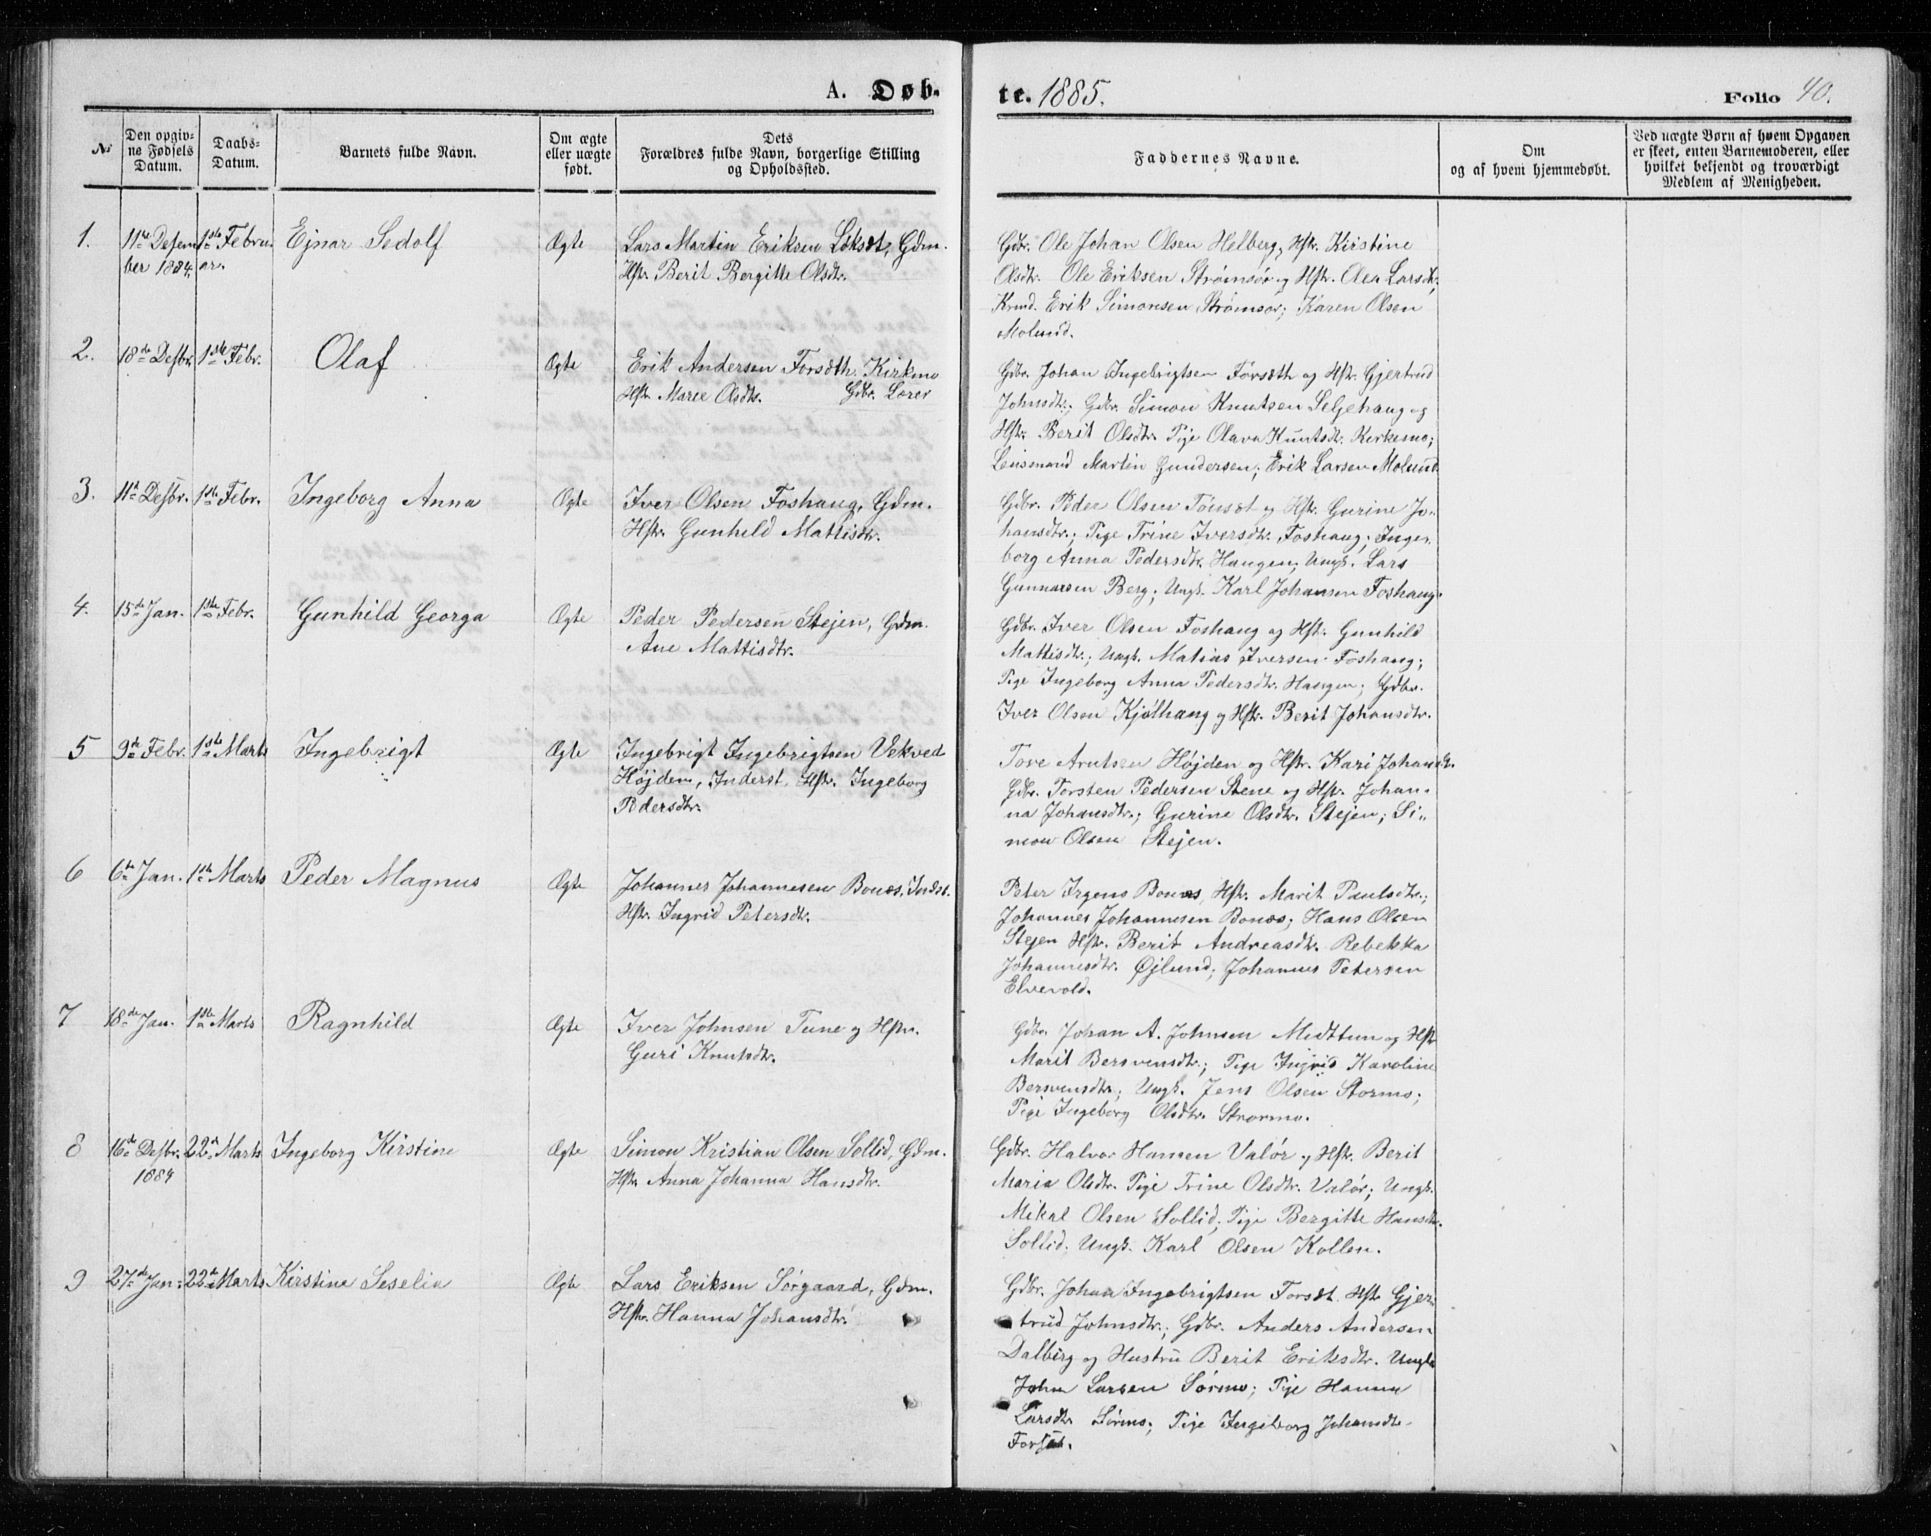 A. Døb-
te. 1885.
Folio 40.
№
Den opgiv-
ne Fødsels
Datum.
Daabs-
Datum.
Barnets fulde Navn.
Om ægte
eller uægte
født.
Dets
Forældres fulde Navn, borgerlige Stilling
og Opholdssted.
Faddernes Navne.
Om
og af hvem hjemmedøbt.
Ved uægte Børn af hvem Opgaven
er skeet, enten Barnemoderen, eller
hvilket bekjendt og troværdigt
Medlem af Menigheden.
1. 11te Desem 1ste Febru Ejnar Sedolf Ægte Lars Martin Eriksen Løkset, Gdm.
ber 1884. ar. Hstr. Berit Bergitte Olsdtr.
Gdbr. Ole Johan Olsen Helberg, Hstr. Kirstine
Olsdtr. Ole Eriksen Strømsør og Hstr. Olea Larsdtr,
Krmd. Erik Simonsen Strømsør; Karen Olsen
Molund.
2. 18de Desbr. 1ste Febr. Olaf Ægte Erik Andersen Forsæth. Kirkmo
Hstr. Maree Olsdtr. Gdbr.
Gdbr. Johan Ingebrigtsen Forsæth og Hstr. Gjertrud
Johnsdtr.; Gdbr. Simon Knutsen Seljehaug og
Hstr. Berit Olsdtr. Pige Olava Knutsdtr. Kirkesmo;
Lensmand Martin Gundersen; Erik Larsen Molund.
3. 11te Desbr. 1ste Febr. Ingeborg Anna Ægte Iver Olsen Foshaug, Gdm.
Hstr. Gunhild Mattisdtr.
Gdbr. Peder Olsen Tønset og Hstr. Gurine Jo-
hansdtr.; Pige Trine Iversdtr. Foshaug; Inge-
borg Anna Pedersdtr. Haugen; Ungk. Lars
Gunnarsen Berg; Ungk. Karl Johansen Foshaug.
4. 15de Jan. 1ste Febr. Gunhild Georga Ægte Peder Pedersen Stejen, Gdm.
Ane Mattisdtr.
Gdbr. Iver Olsen Foshaug og Hstr. Gunhild
Mattisdtr.; Ungk. Matias Iversen Foshaug;
Pige Ingeborg Anna Pedersdtr. Haugen; Gdbr.
Iver Olsen Kjølhaug og Hstr. Berit Johansdtr.
5 9de Febr. 1ste Marts Ingebrigt Ægte Ingebrigt Ingebrigtsen Vekved
Højden, Inderst. Hstr. Ingeborg
Pedersdtr.
Tore Arntsen Højden og Hstr. Kari Johansdtr.
Gdbr. Torsten Pedersen Stene og Hstr. Johan-
na Johansdtr.; Gurine Olsdtr. Stejen; Si-
mon Olsen Stejen.
6 6te Jan. 1ste Marts Peder Magnus Ægte Johannes Johannesen Bonæs, Indst.
Hstr. Ingrid Petersdtr.
Peter Irgens Bonæs, Hstr. Marit Paulsdtr.;
Johannes Johannesen Bonæs; Hans Olsen
Stejen Hstr. Berit Andreasdtr. Rebekka
Johannesdtr. Øjlund; Johannes Petersen
Elvevold.
7 18de Jan. 1ste Marts Ragnhild Ægte Iver Johnsen Tune og Hstr.
Guri Knutsdtr.
Gdbr. Johan A. Johnsen Midttun og Hstr
Marit Bersvensdtr.; Pige Ingrid Karoline
Bersvensdtr.; Ungk. Jens Olsen Stormo;
Pige Ingeborg Olsdtr. Strormo.
8 16de Desbr. 22de Marts Ingeborg Kirstine Ægte Simon Kristian Olsen Sollid, Gdm.
1884 Hstr. Anna Johanna Hansdtr.
Gdbr. Halvor Hansen Valør og Hstr. Berit
Maria Olsdtr. Pige Trine Olsdtr. Valør; Ungk.
Mikal Olsen Sollid; Pige Bergitte Hansdtr.
Sollid. Ungk. Karl Olsen Kollen.
9 27de Jan. 22de Marts Kirstine Seselia Ægte Lars Eriksen Sørgaard, Gdm.
Hstr. Hanna Johansdtr.
Gdbr. Johan Ingebrigtsen Forsæt, Hstr Gjer-
trud Johnsdtr.; Gdbr. Anders Andersen
Dalberg og Hustru Berit Eriksdtr. Ungk
John Larsen Sørmo; Pige Hanna
Larsdtr Sørmo; Pige Ingeborg Johansdtr
Forsæt.